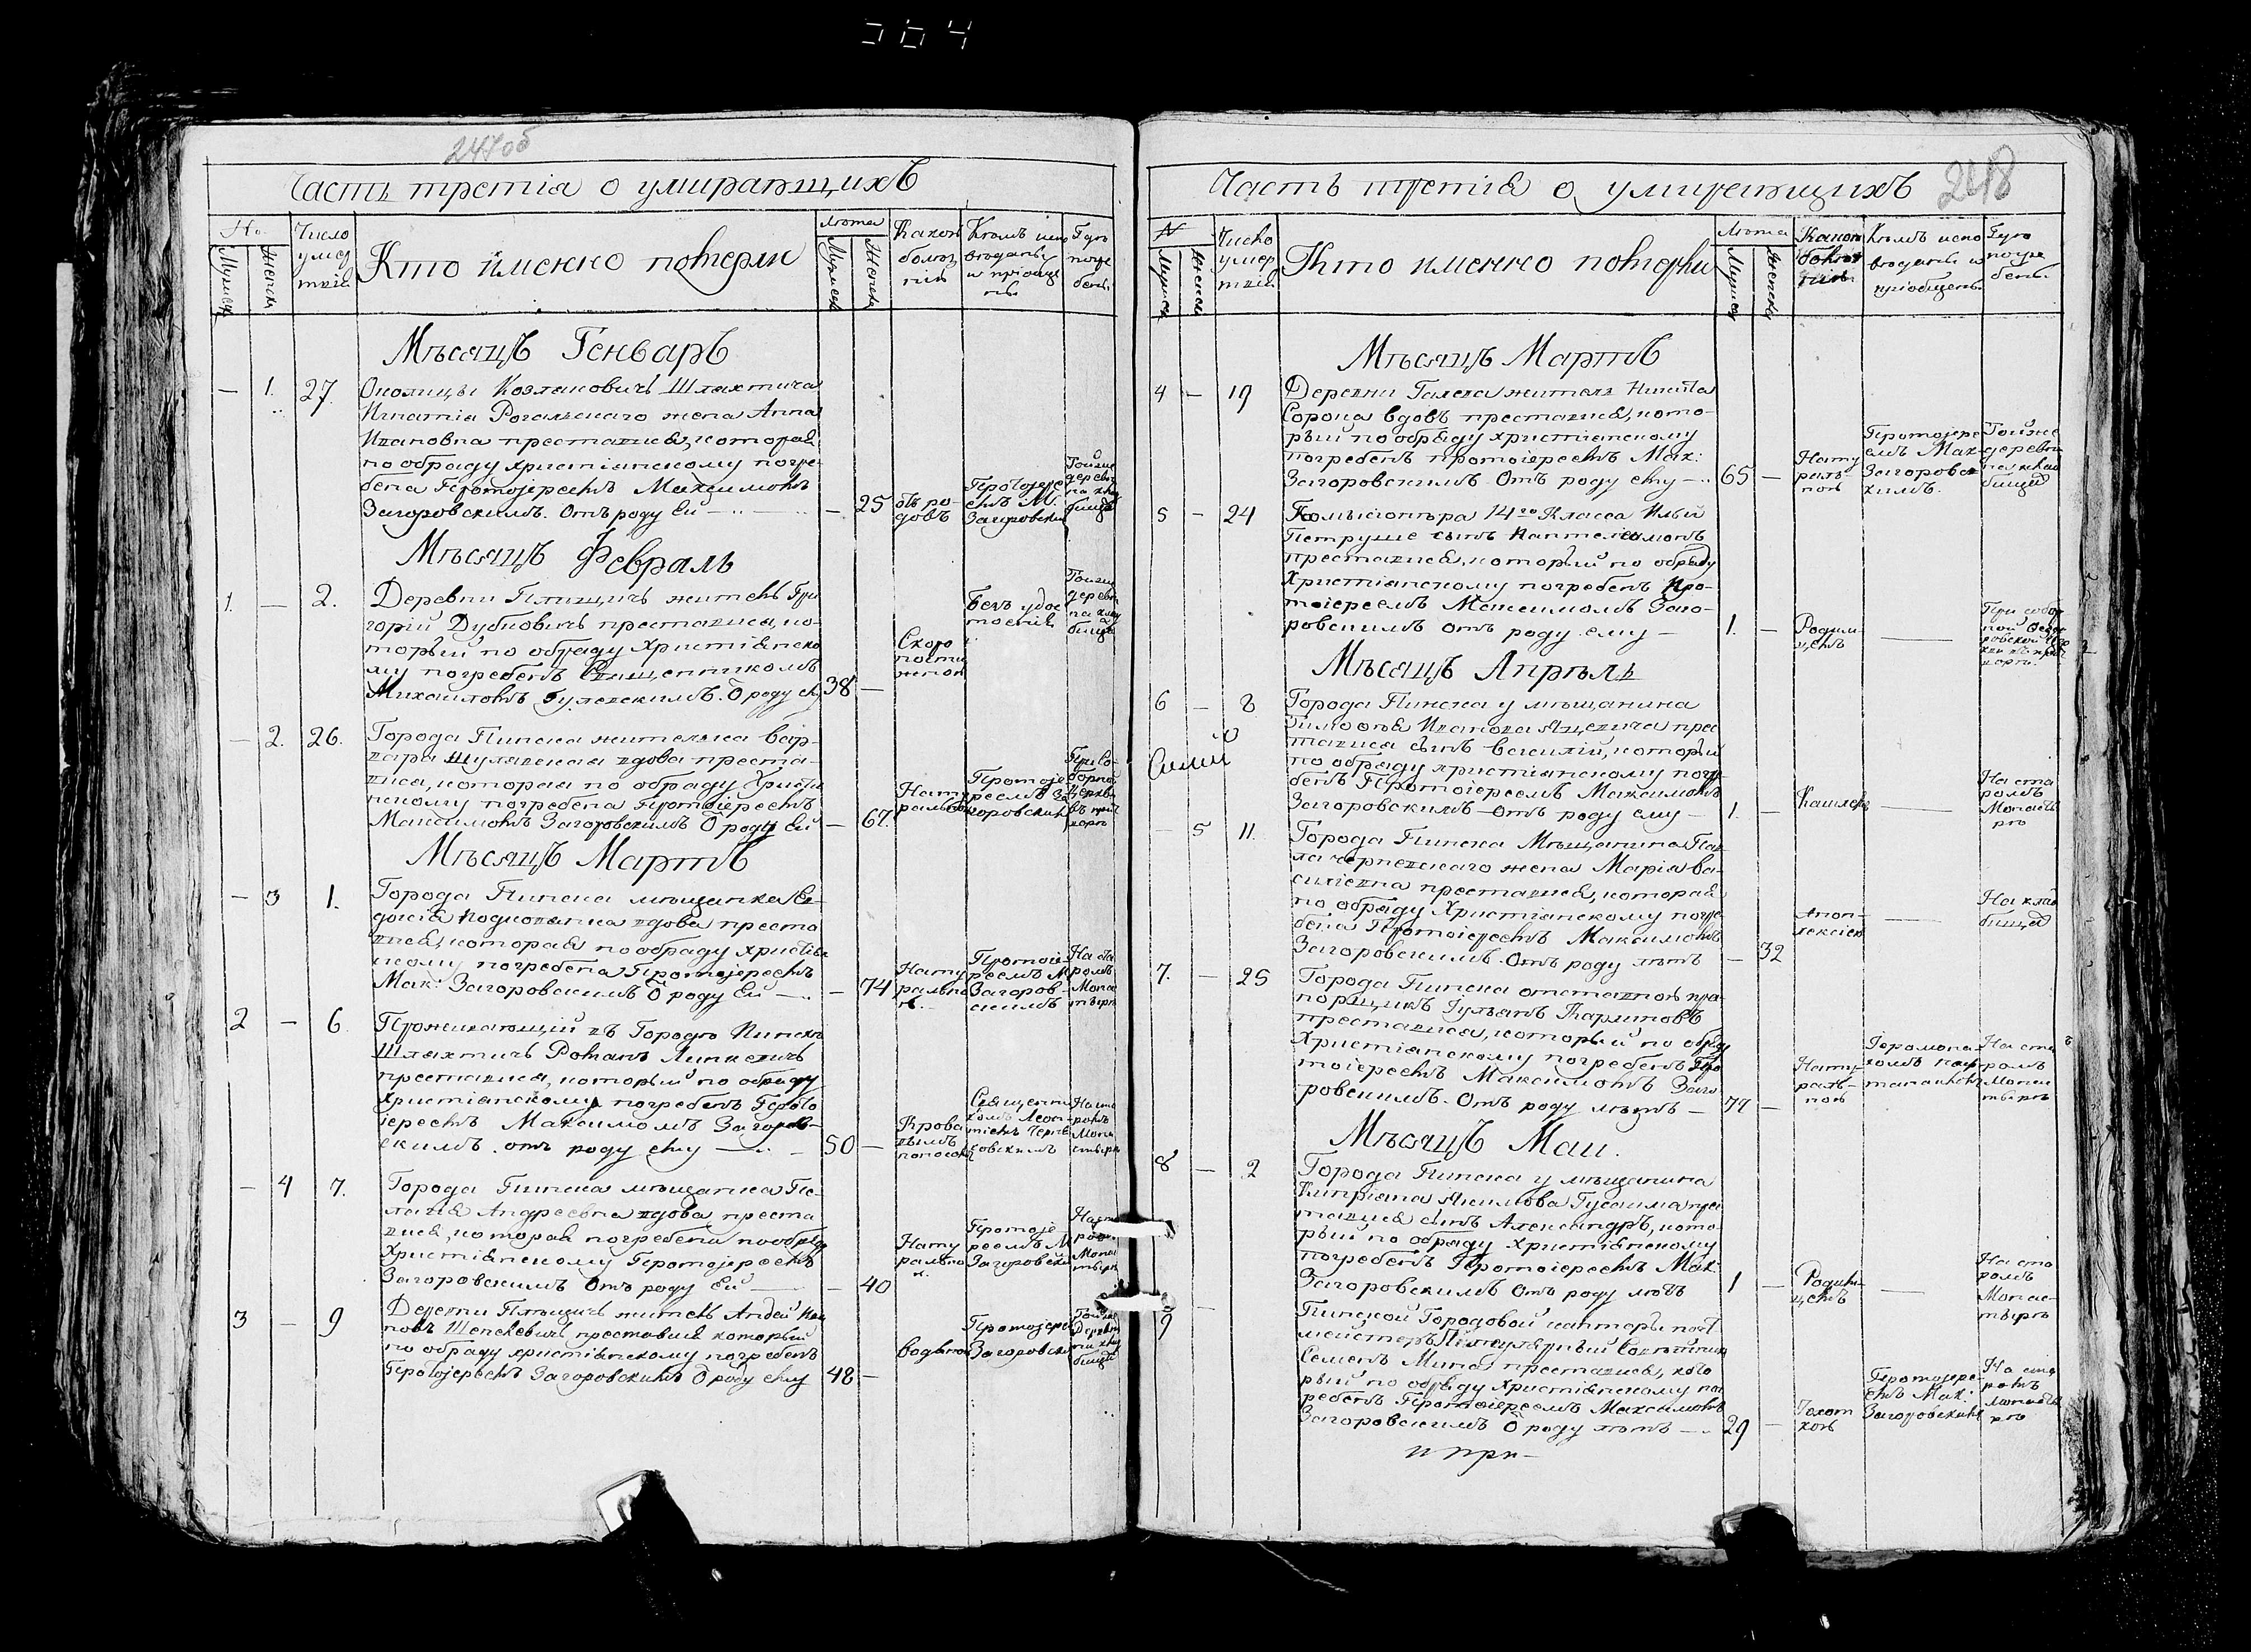 247об
Часть третія о умирающихъ
Но.
Мужеск
Женск
Число умер шихъ
Кто именно померли
Лѣта
Мужеск
Женск
Какою болѣз нію
Кѣмъ испо вѣданы и пріобще ны
Гдѣ погре бены
Мѣсяцъ Генварь
— 1. 27. Околицы Козляковичъ Шляхтича
Игнатія Рогальскаго жена Анна
Ивановна преставися, которая
по обряду христіанскому погре-
бена Протоіереемъ Максимомъ
Загоровскимъ. Отъ роду Ей — 25
отъ ро-
довъ
Протоіере
емъ М.
Загоровски
Тойже
деревн
на клад
бищѣ
Мѣсяцъ Февраль
1. — 2. Деревни Птищичь житель Гри
горій Дубновичь преставися, ко-
торый по обряду Христіанско
му погребенъ Священникомъ
Михаиломъ 38 —
Скоро
пости
жною
Тойже
деревн
на клад
бищѣ
— 2. 26. Города Пинска жителька Вар-
вара Шулявская вдова преста-
вися, которая по обряду Христі
нскому погребена Протоіереемъ
Максимомъ Загоровскимъ О роду Ей — 67.
Нату
ральн
Протоіе
реемъ За
горовским
При Со-
борной
Церкви
Мѣсяцъ Мартъ
— 3 1. Города Пинска мѣщанка Ев-
докія вдова преста
вися, которая по обряду христіан
скому погребена Протоіереемъ
Мак: Загоровскимъ О роду Ей — 74
Нату
рально
Протоіе-
реемъ М
Загоров-
скимъ
На ста
ромъ
Мона
тырѣ
2 — 6. Проживающій въ Городѣ Пинскѣ
Шляхтичь Романъ Линкевичь
преставися, который по обряду
Христіанскому погребенъ Прото
іереемъ Максимомъ Загоров-
скимъ. отъ роду ему — 50 —
Крова
вымъ
поносомъ
Священни
комъ Леон-
тіемъ
На ста
ромъ
Мона
стырѣ
— 4 7. Города Пинска мѣщанка Пе-
лагія Андреевна вдова преста
вися, которая погребена по обряд
Христіанскому Протоіереемъ
Загоровскимъ Отъ роду Ей — 40
Нату
рально
Протоіе
реемъ М
Загоровски
3 — 9 Деревни житель Андрей
преставися который
по обряду христіанскому погребенъ
Протоіереемъ Загоровскимъ О роду ему 48 —
Протоіере
Загоровски
248
Часть третія о умирающихъ
N
Мужеск
Женск
Число умер шихъ
Кто именно померли
Лѣта
Мужеск
Женску
Какою болѣз нію
Кѣмъ испо вѣданы и пріобщены
Гдѣ погре бены
Мѣсяцъ Мартъ
4 — 19 Деревни Галева житель Никита
Сорока вдовъ преставися, кото-
рый по обряду христіанскому
погребенъ протоіереемъ Мак:
Загоровскимъ. Отъ роду ему — 65 —
Нату
раль-
ною
Протоіере
емъ Мак
Загоровс
кимъ.
Тойже
деревни
на клад
бищѣ
5 — 24 14го Класса Ильи
Петруше сынъ Пантелеимонъ
преставися, который по обряду
Христіанскому погребенъ Про-
тоіереемъ Максимомъ Заго-
ровскимъ отъ роду ему — 1. —
Родим-
цемъ
Мѣсяцъ Апрѣль
6 — 8 Города Пинска у мѣщанина
Тимофея Иванова прес
тавися сынъ Василій, который
по обряду христіанскому погре
бенъ Протоіереемъ Максимомъ
Загоровскимъ — отъ роду ему — 1. —
Кашлемъ
На ста
ромъ
Монаст
рѣ
— 5 11. Города Пинска Мѣщанина Пав
ла жена Марія Ва-
силіевна преставися, которая
по обряду Христіанскому погре
бена Протоіереемъ Максимомъ
Загоровскимъ. Отъ роду лѣтъ — 32
Апоп-
лексіею
На клад
бищѣ
7. — 25 Города Пинска отставной пра-
порщикъ
преставися, который по обряд
Христіанскому погребенъ Про
тоіереемъ Максимомъ Заго
ровскимъ. Отъ роду лѣтъ — 77 —
Нату-
раль-
ною
Іеромона-
хомъ
На ста
ромъ
Мона
тырѣ
Мѣсяцъ Маи.
8 — 2 Города Пинска у мѣщанина
Кипріана прес
тавися сынъ Александръ, кото-
рый по обряду Христіанскому
погребенъ Протоіереемъ Мак:
Загоровскимъ Отъ роду лѣтъ 1 —
Родим-
цемъ
На ста
ромъ
Монас-
тырѣ
9 — Пинской Городовой конторы пост
мейстеръ Титулярный Совѣтникъ
Семенъ преставися, кото
рый по обряду Христіанскому пог
ребенъ Протоіереемъ Максимомъ
Загоровскимъ О роду лѣтъ — 29 —
Чахот
кою
Протоіере-
емъ Мак:
Загоровским
На ста
ромъ